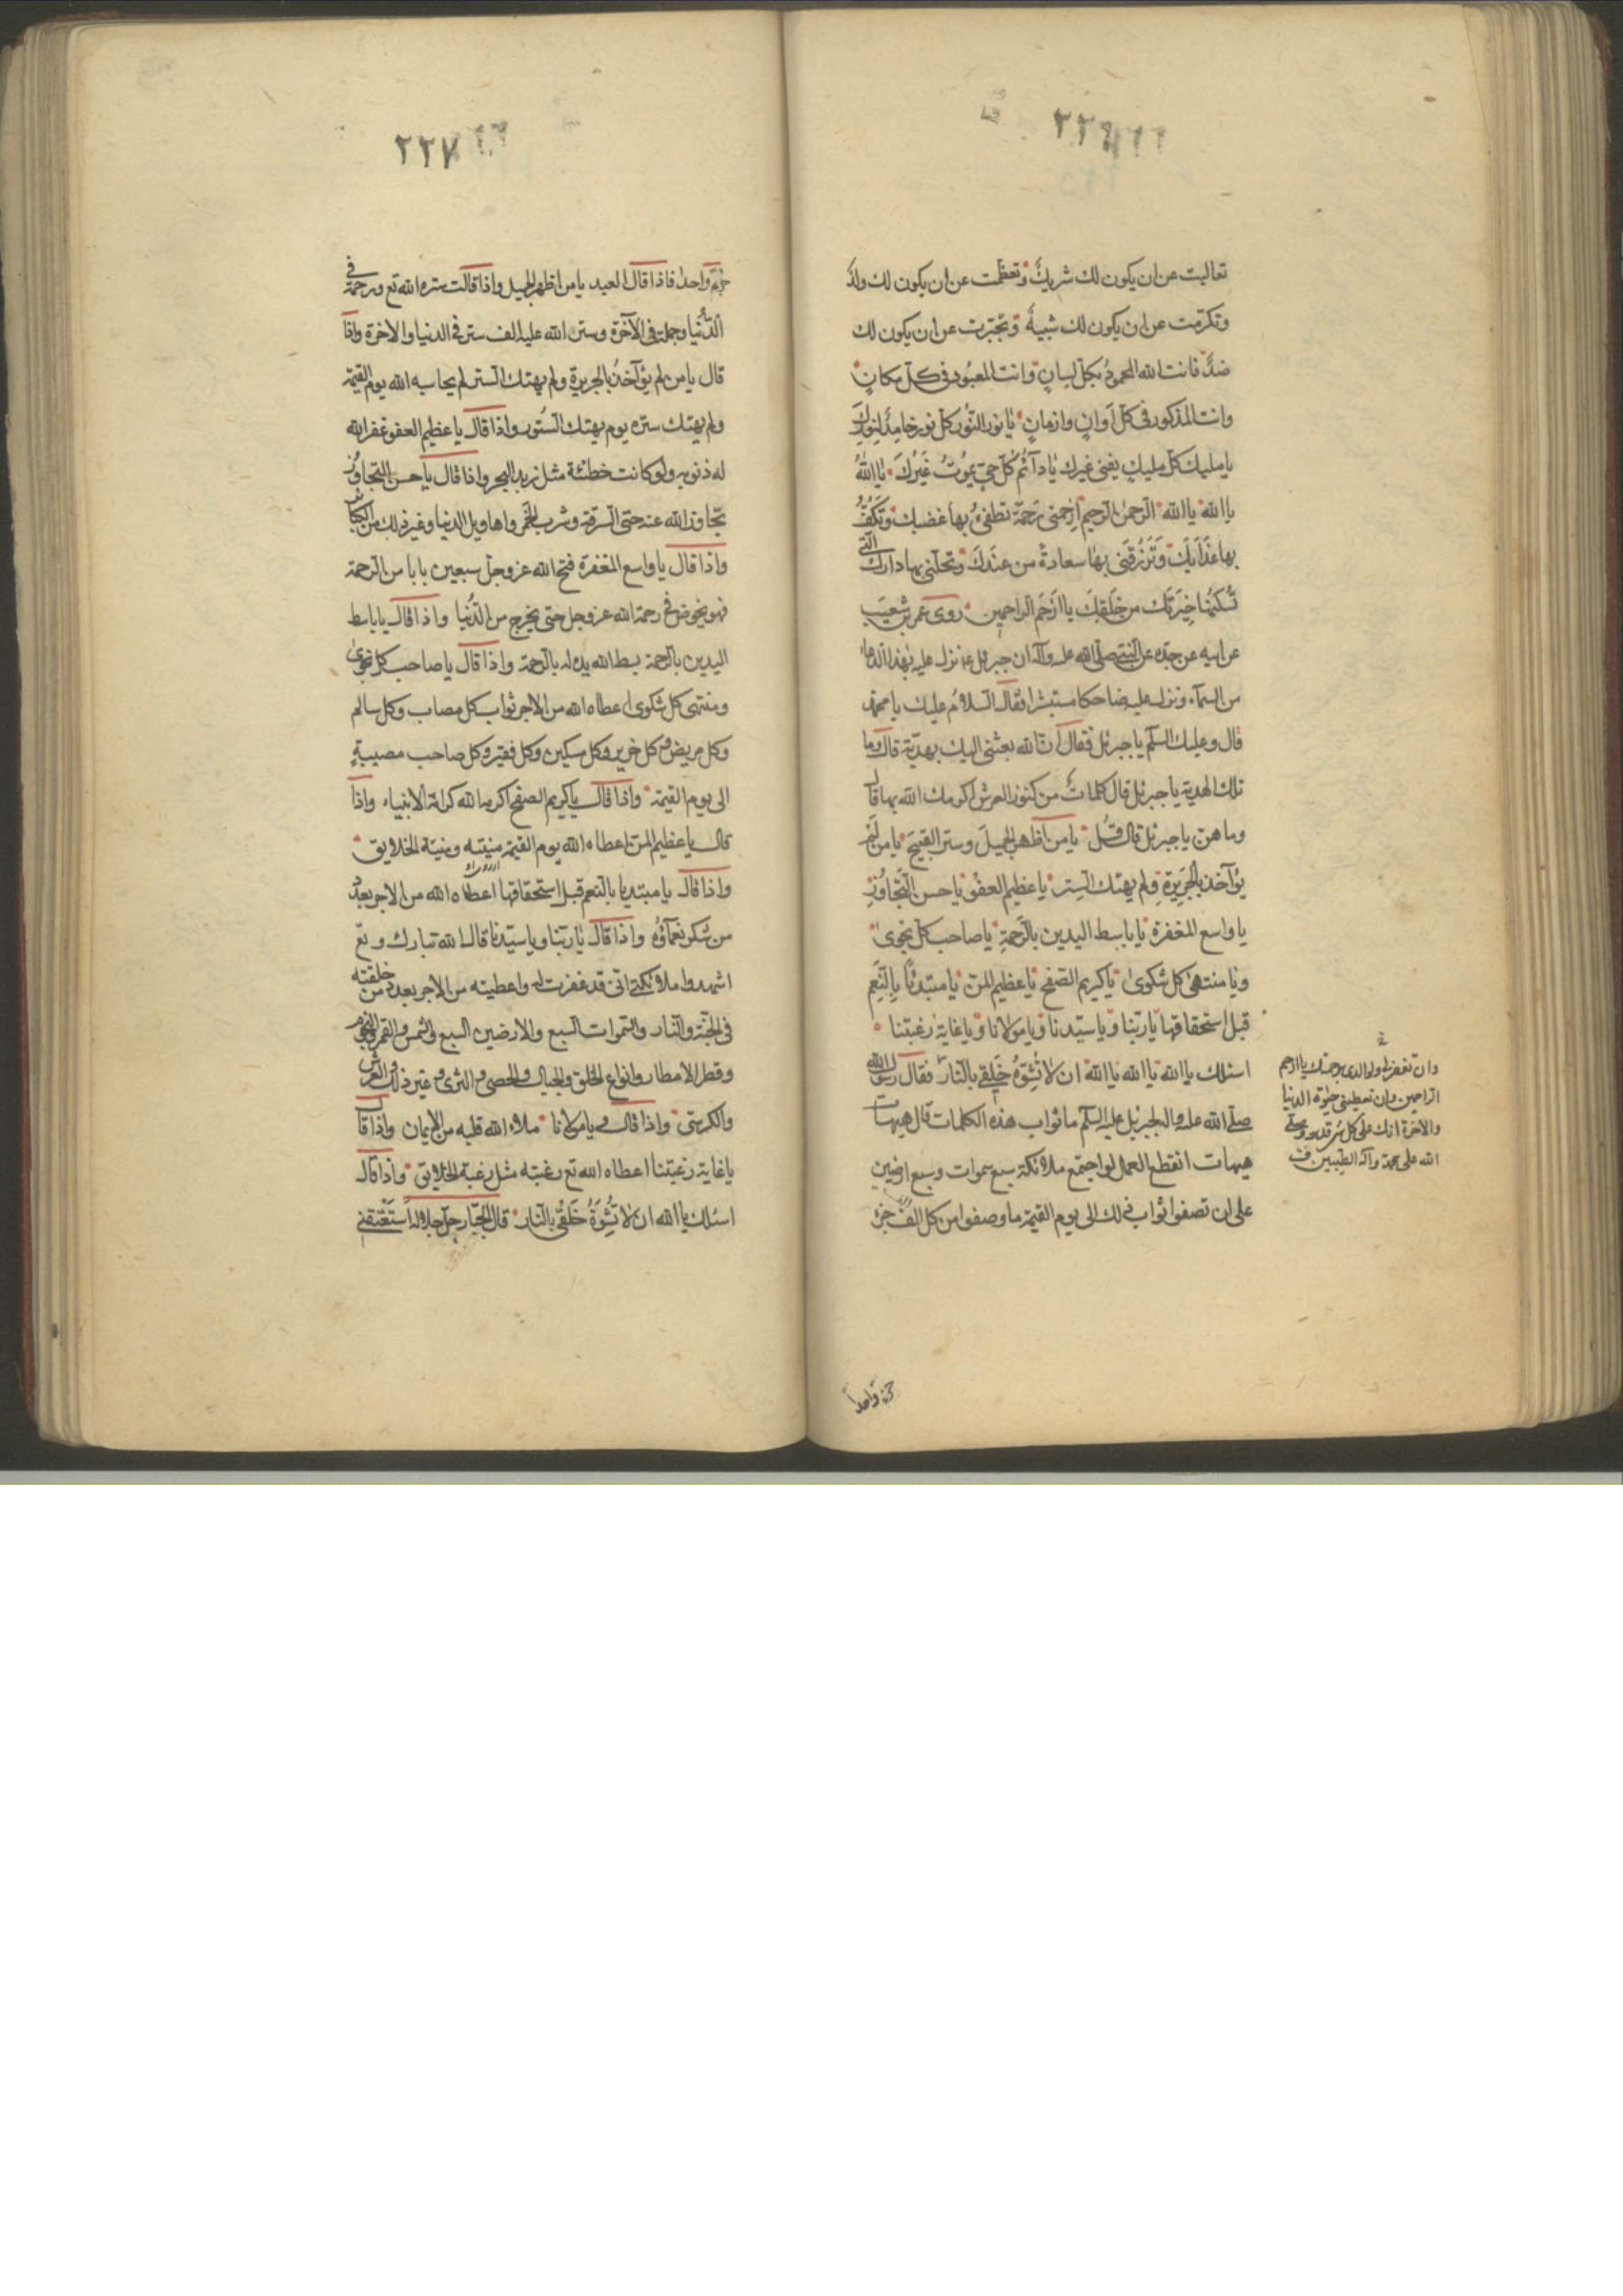 ٢٢٦
تعاليت عن ان يكون لك شريك وتعظمت عن ان يكون لك ولد
وتكرمت عن ان يكون لك شبيه وتجبرت عن ان يكون لك
ضد فانت الله المحمود بكل لسان وانت المعبود في كل مكان
وانت المذكور في كل اوان وازمان يا نور النور كل نور خامد لنورك
يا مليك كل مليك يفنى غيرك يا دائم كل حي يموت غيرك يا الله
يا الله يا الله الرحمن الرحيم ارحمني رحمة تطفئ بها غضبك وتكف
بها عذابك وترزقني بها سعادة من عندك وتحلني بها دارك التي
تسكنها خيرتك من خلقك يا ارحم الراحمين روى عمر بن شعيب
عن ابيه عن جده عن النبي صلى الله عليه وآله ان جبرئيل ع نزل عليه بهذا الدعاء
من السماء ونزل عليه ضاحكا مستبشرا فقال السلام عليك يا محمد
قال وعليك السلم يا جبرئيل فقال ان الله بعثني اليك بهدية قال وما
تلك الهدية يا جبرئيل قال كلمات من كنوز العرش اكرمك الله بها قال
وما هن يا جبرئيل قال قل يا من اظهر الجميل وستر القبيح يا من لم
يؤآخذ بالجريرة ولم يهتك الستر يا عظيم العفو يا حسن التجاوز
يا واسع المغفرة يا باسط اليدين بالرحمة يا صاحب كل نجوى
ويا منتهى كل شكوى يا كريم الصفح يا عظيم المن يا مبتدئا بالنعم
قبل استحقاقها يا ربنا ويا سيدنا ويا مولانا ويا غاية رغبتنا
اسئلك يا الله يا الله يا الله ان لا تشوه خلقي بالنار فقال رسول الله
صلى الله عليه وآله لجبرئيل عليه السلم ما ثواب هذه الكلمات قال هيهات
هيهات انقطع العمل لو اجتمع ملائكة سبع سموات وسبع ارضين
على ان تصفوا ثواب ذلك الى يوم القيمة ما وصفوا من كل الف جزء
وان تغفر لي ولوالدي برحمتك يا ارحم
الراحمين وان تعطيني خير الدنيا
والآخرة انك على كل شئ قدير وصلى
الله على محمد وآله الطيبين
جزء واحدا
٢٢٧
جزء واحدا فاذا قال العبد يا من اظهر الجميل واذا قالت ستره الله تع ورحمة في
الدنيا وجمله في الآخرة وستر الله عليه الف ستر في الدنيا والاخرة واذا
قال يا من لم يؤآخذ بالجريرة ولم يهتك الستر لم يحاسبه الله يوم القيمة
ولم يهتك ستره يوم يهتك الستور واذا قال يا عظيم العفو غفر الله
له ذنوبه ولو كانت خطئة مثل زبد البحر واذا قال يا حسن التجاوز
تجاوز الله عنه حتى السرقة وشرب الخمر واهاويل الدنيا وغير ذلك من الكبائر
واذا قال يا واسع المغفرة فتح الله عز وجل سبعين بابا من الرحمة
فهو يخوض في رحمة الله عز وجل حتى يخرج من الدنيا واذا قال يا باسط
اليدين بالرحمة بسط الله يده له بالرحمة واذا قال يا صاحب كل نجوى
ومنتهى كل شكوى اعطاه الله من الاجر ثواب كل مصاب وكل سالم
وكل مريض وكل ضرير وكل مسكين وكل فقير وكل صاحب مصيبة
الى يوم القيمة واذا قال يا كريم الصفح اكرمه الله كرامة الانبياء واذا
قال يا عظيم المن اعطاه الله يوم القيمة منيته ومنية الخلايق
واذا قال يا مبتديا بالنعم قبل استحقاقها اعطاه الله من الاجر بعدد
من شكر نعمآؤه واذا قال يا ربنا ويا سيدنا قال الله تبارك وتع
اشهدوا ملائكتي اني قد غفرت له واعطيته من الاجر بعدد من خلقته
في الجنة والنار والسموات السبع والارضين السبع والشمس والقمر والنجوم
وقطر الامطار وانواع الخلق والجبال والحصى والثرى وغير ذلك والعرش
والكرسي واذا قال يا مولانا ملاء الله قلبه من الايمان واذا قال
يا غاية رغبتنا اعطاه الله تع رغبته مثل رغبة الخلايق واذا قال
اسئلك يا الله ان لا تشوه خلقي بالنار قال الجبار جل جلاله استعتقني